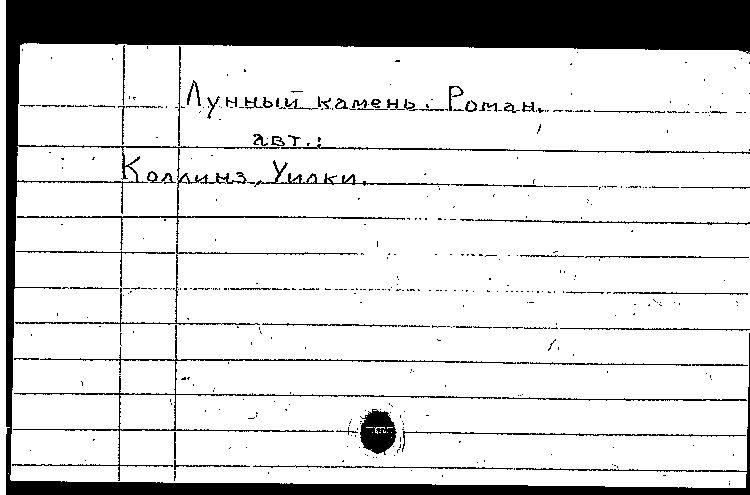 Лунный камень. Роман.
авт.:
Коллинз, Уилки.